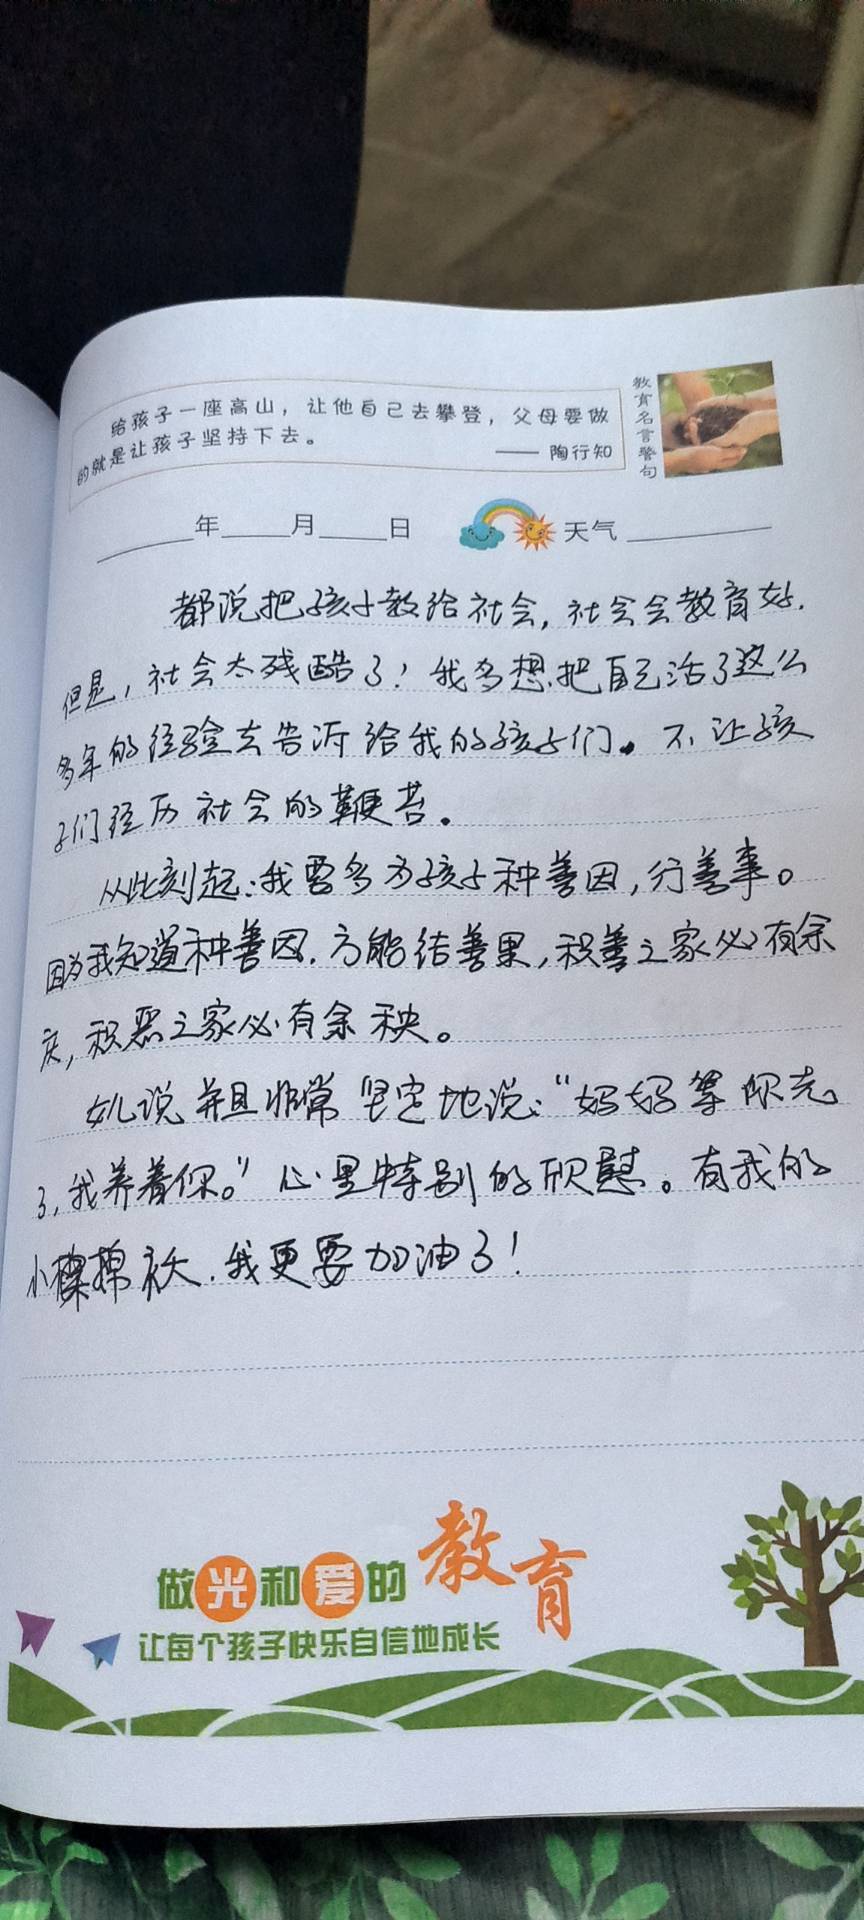 给孩子一座高山，让他自己去攀登，父母要做
的就是让孩子坚持下去。
—— 陶行知
教育名言警句
年 月 日 天气
都说把孩子教给社会，社会会教育好.
但是，社会太残酷了！我多想把自己活了这么
多年的经验去告诉给我的孩子们。不让孩
子们经历社会的鞭苔。
从此刻起：我要多为孩子种善因，行善事。
因为我知道种善因.方能结善果，积善之家必有余
庆，积恶之家必有余秧。
女儿说并且非常坚定地说："妈妈等你老
了，我养着你。"心里特别的欣慰。有我的
小棉袄.我更要加油了！
做光和爱的教育
让每个孩子快乐自信地成长